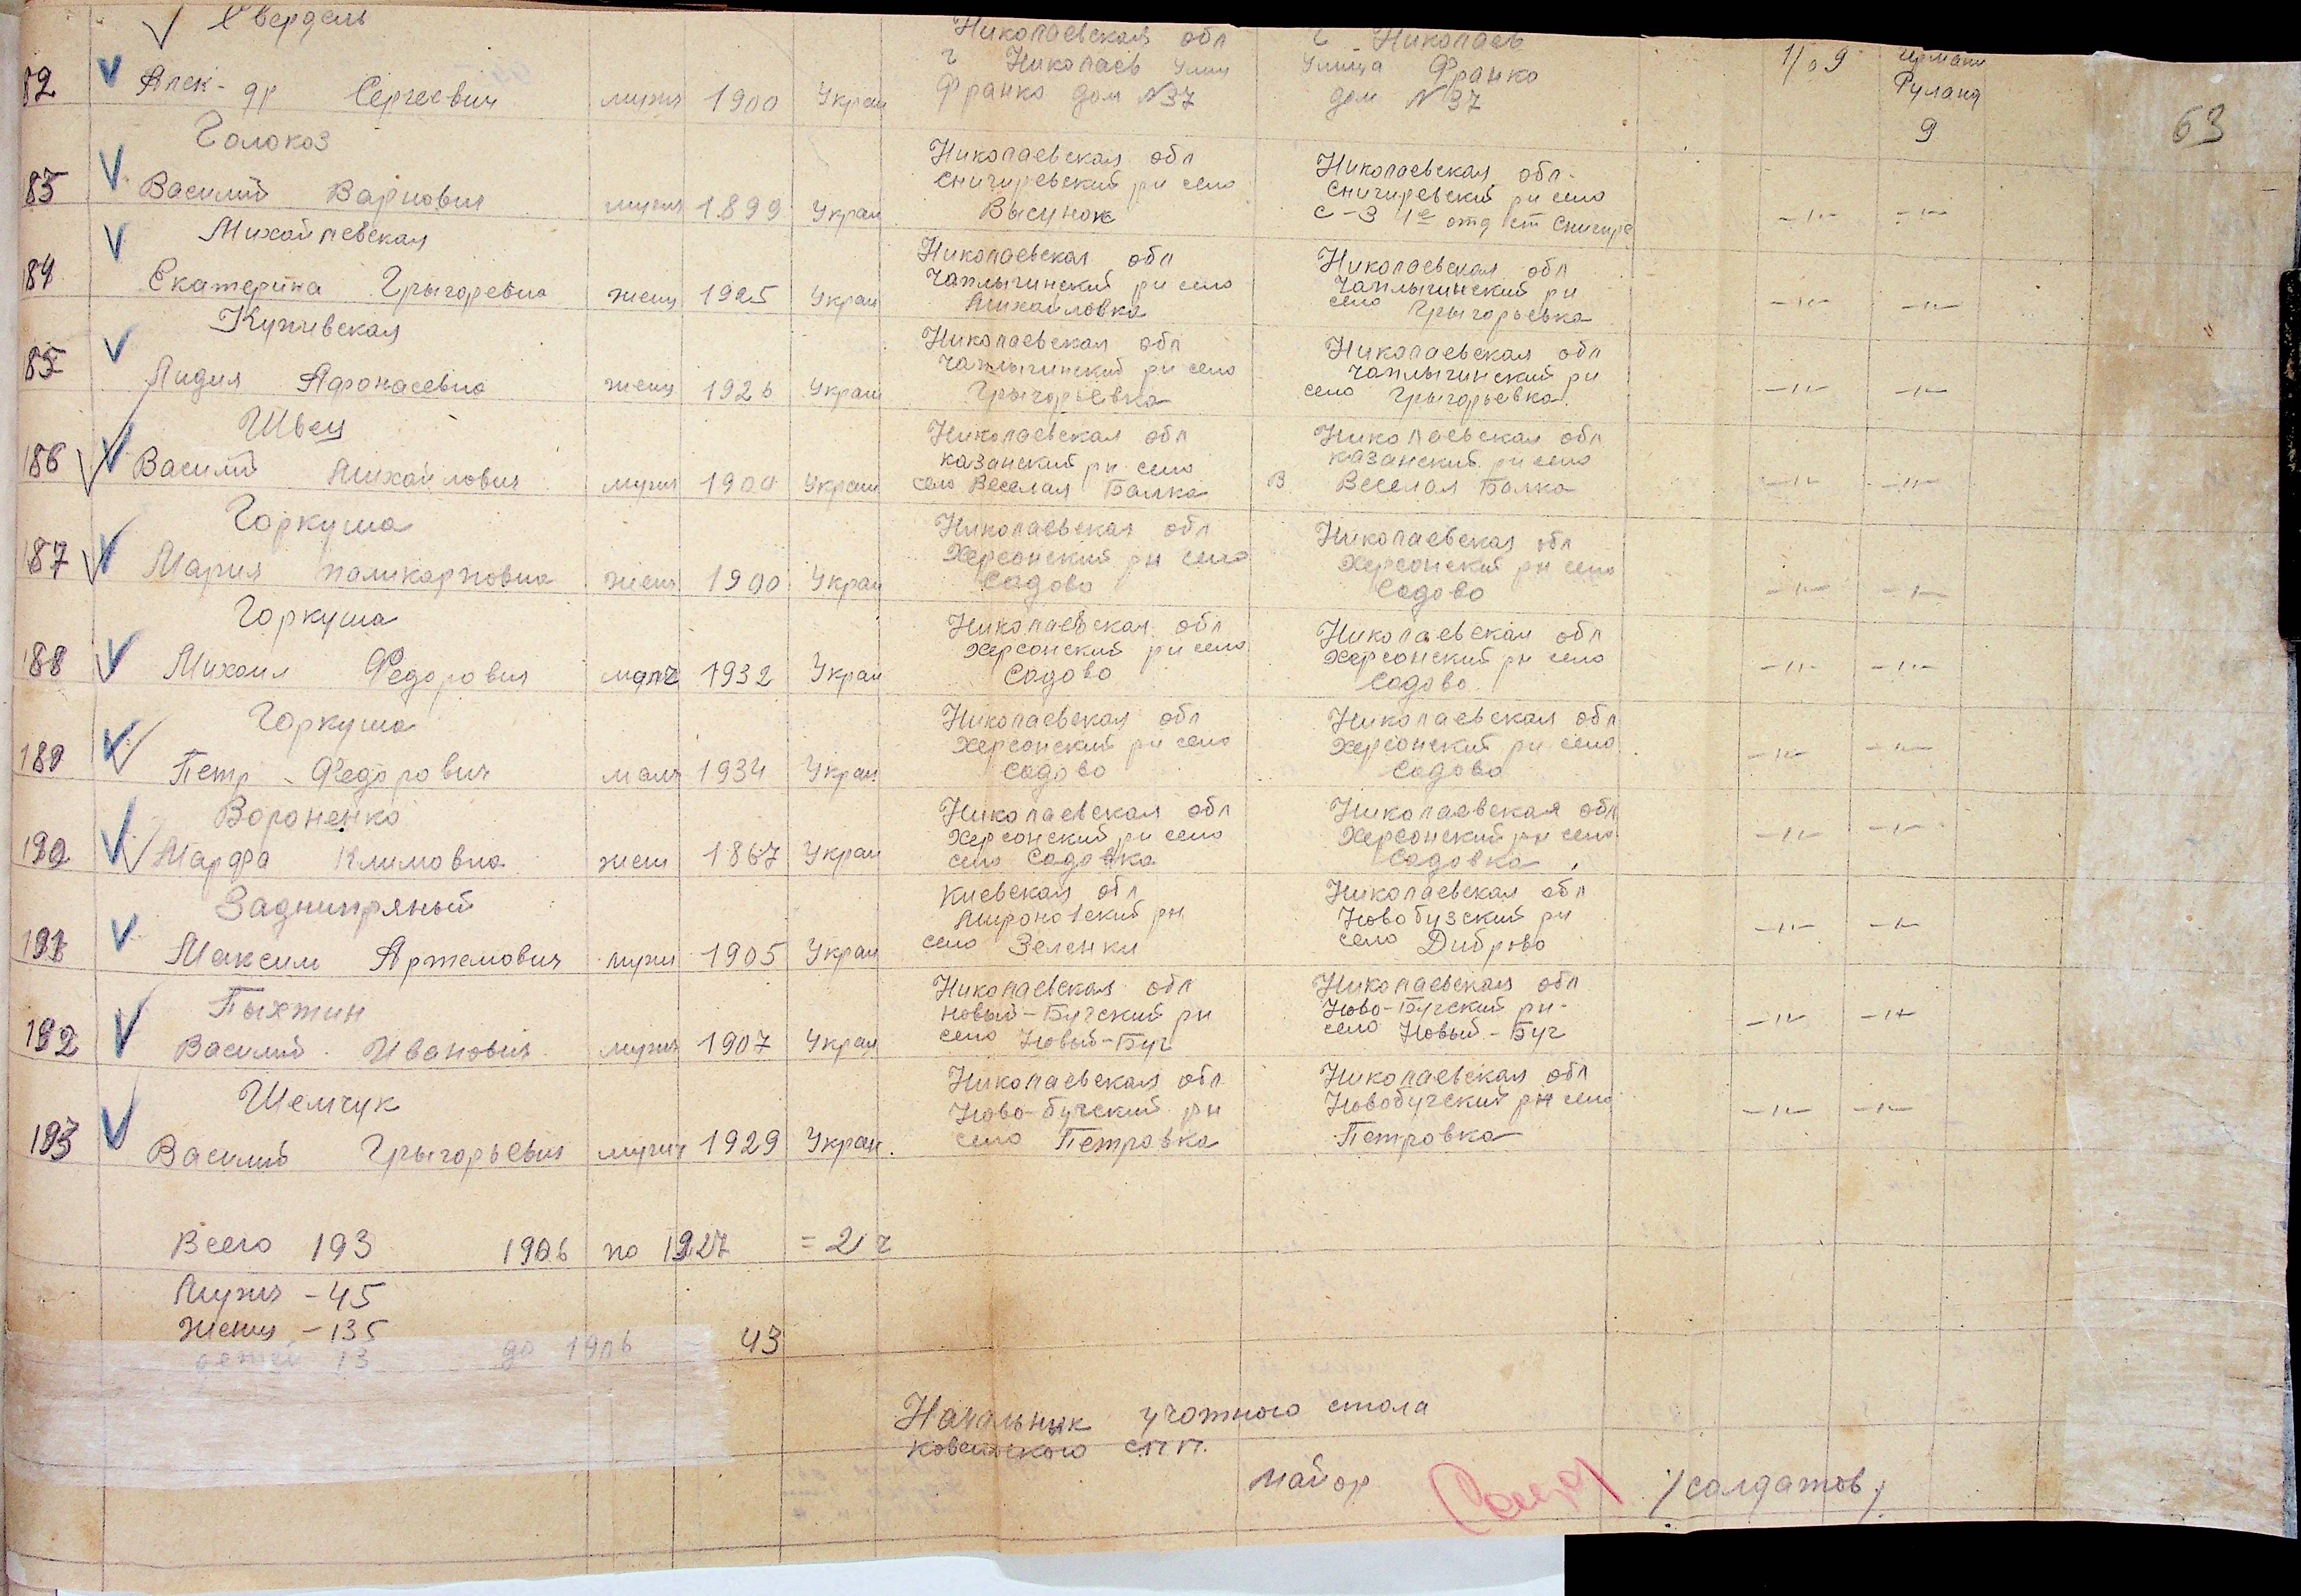 Свердель Николаевская обл г Николаев
182 Алек-др Сергеевич мужч 1900 Украи г Николаев улиц Франко дом №37 улица Франко дом №37 1/09
9
63
Голокоз
183 Василий мужч 1899 Украи Николаевская обл Снигиревский рн село Высунок Николаевская обл. Снигиревский рн село С-З 1е отд ст Снигире -"- -"-
Михайлевская
184 Екатерина Грыгоревна женщ 1925 Украи Николаевская обл Чаплычинский рн село Михайловка Николаевская обл Чаплычинский рн село Грыгорьевка -"- -"-
185 Лидия Афонасевна женщ 1926 Украи Николаевская обл Чаплычинский рн село Грыгорьевка Николаевская обл Чаплычинский рн село Грыгорьевка -"- -"-
Швец
186 Василий Михайлович мужч 1900 Украи Николаевская обл казанский рн село село Веселая Балка Николаевская обл казанский рн село В Веселая Балка -"- -"-
Горкуша
187 Мария поликарповна женщ 1900 Украи Николаевская обл Херсонский рн село Садово Николаевская обл Херсонский рн село Садово -"- -"-
Горкуша
188 Михаил Федорович малч 1932 Украи Николаевская обл Херсонский рн село Садово Николаевская обл Херсонский рн село Садово -"- -"-
Горкуша
189 Петр Федорович малч 1934 Украи Николаевская обл Херсонский рн село Садово Николаевская обл Херсонский рн село Садово -"- -"-
Вороненко
190 Марфа Климовна жен 1867 Украи Николаевская обл Херсонский рн село село Садовка Николаевская обл Херсонский рн село Садовка -"- -"-
Заднипряный
191 Максим Артемович мужч 1905 Украи Киевская обл рн село Зеленки Николаевская обл Новобузский рн село Диброво -"- -"-
Пыхтин
192 Василий Иванович мужч 1907 Украи Николаевская обл Новый-Бугский рн село Новый-Буг Николаевская обл Ново-Бугский рн село Новый-Буг -"- -"-
Шемчук
193 Василий Грыгорьевич мужч 1929 Украи. Николаевская обл Ново-бугский рн село Петровка Николаевская обл Новобугский рн село Петровка -"- -"-
Всего 193 1906 по 1927 = 21 ч
Мужч - 45
Женщ - 135
детей 13 до 1906 43
Начальнык учотного стола
ковельского СПП.
майор /солдатов/